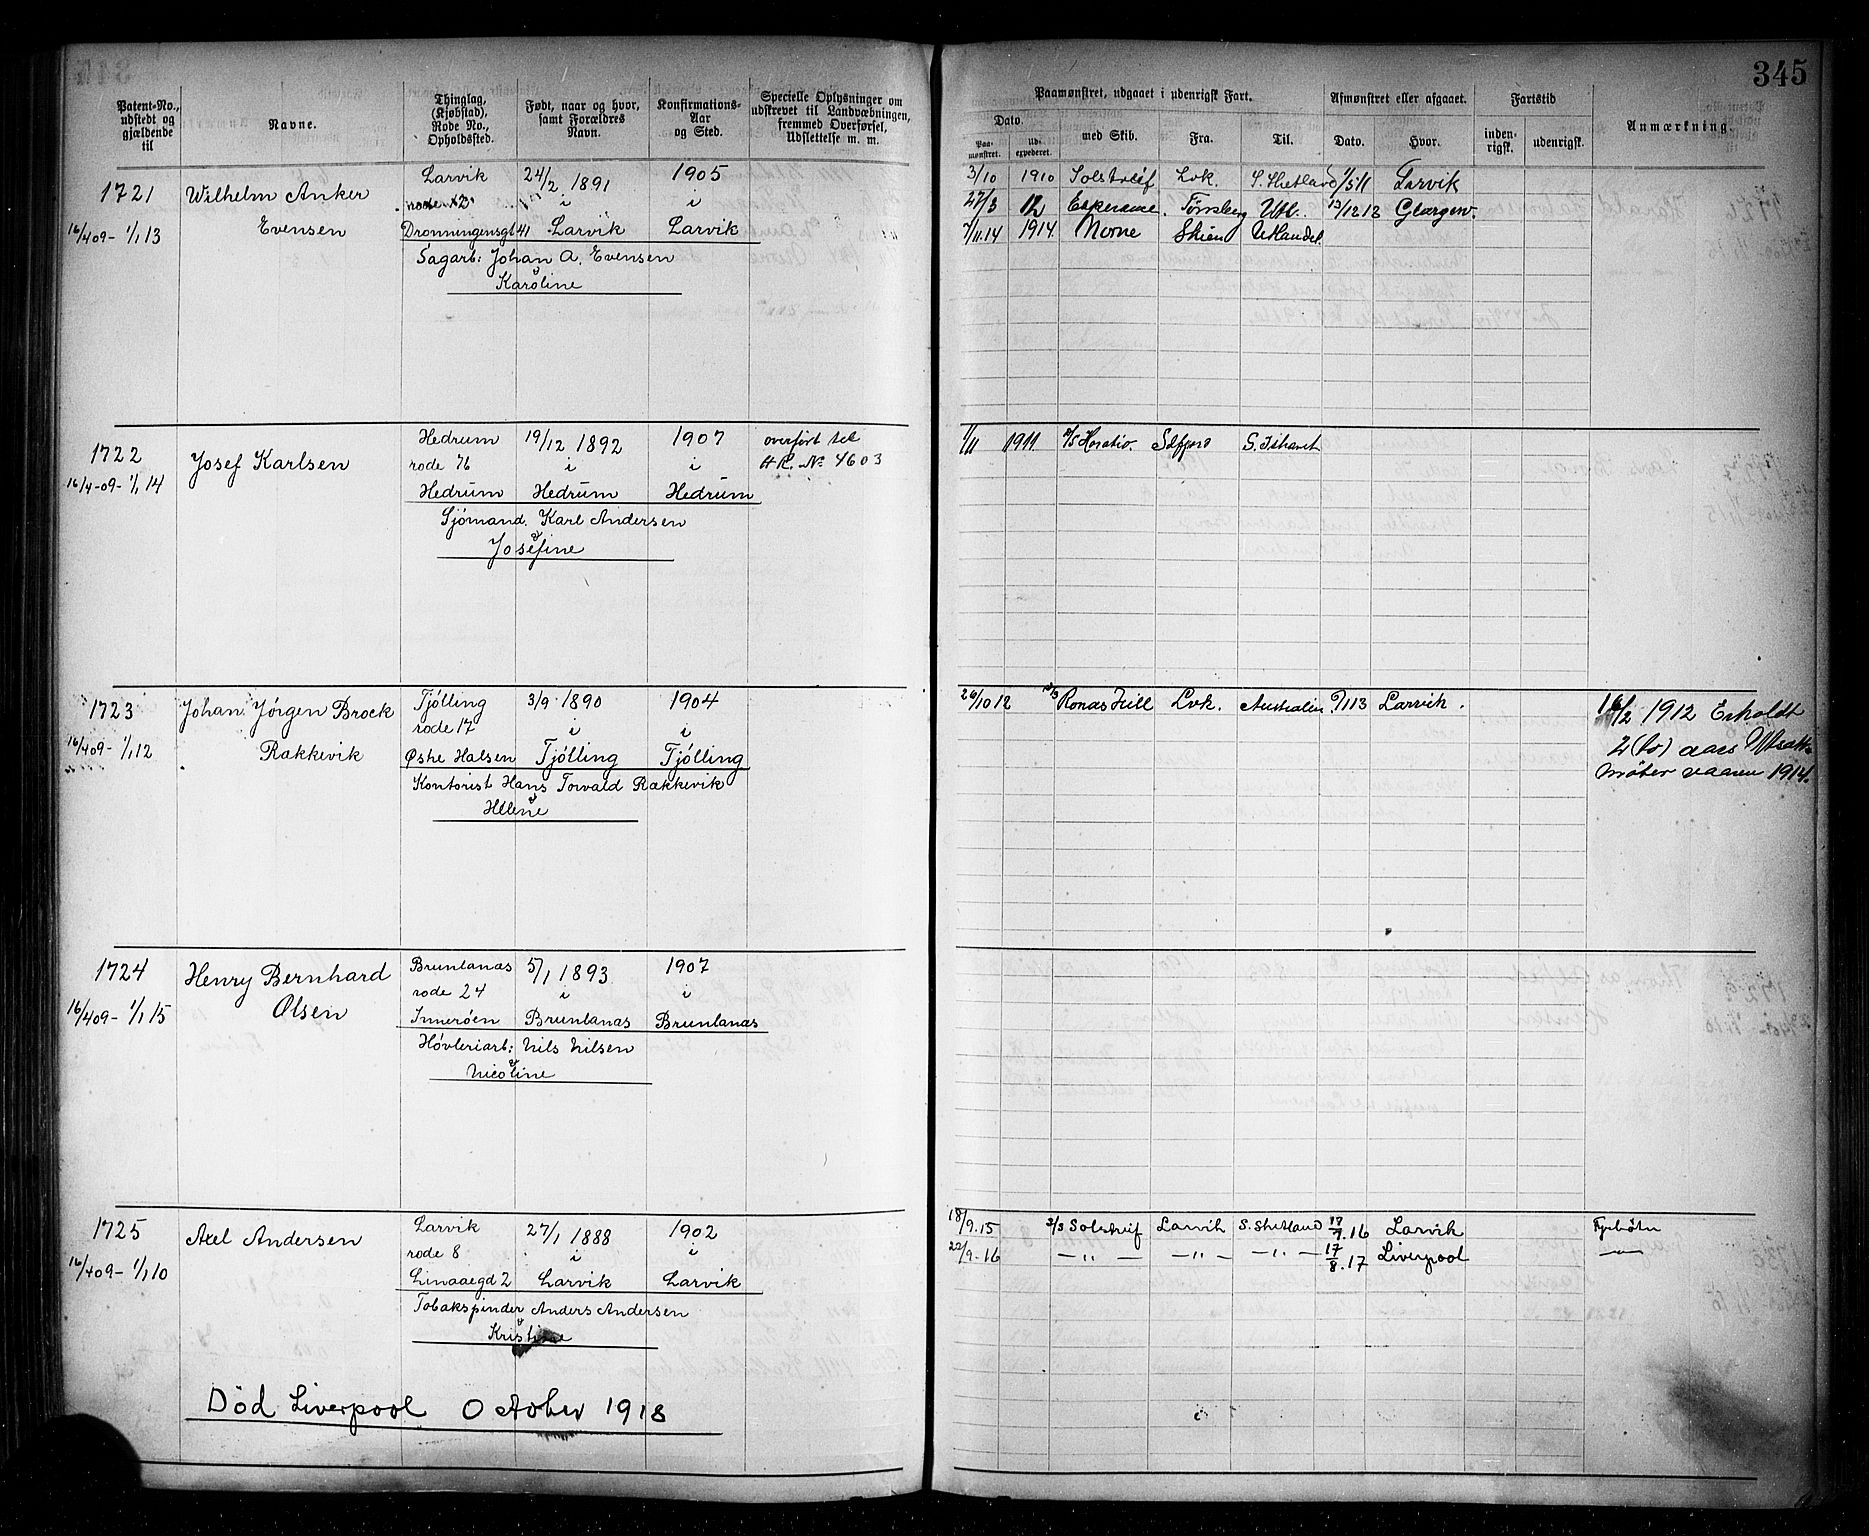 345
Patent-No., udstedt og gjældende til
Navne.
Thinglag, (Kjøbstad), Rode No., Opholdssted.
Født, naar og hvor, samt Forældres Navn.
Konfirmations- Aar og Sted.
Specielle Oplysninger om udskrevet til Landvæbningen, fremmed Overførsel, Udslettelse m. m.
Paamønstret, udgaaet i udenrigsk Fart.
Afmønstret eller afgaaet.
Fartstid
Anmærkning.
Dato
Paa- mønstret.
Ud- expederet.
med Skib.
Fra.
Til.
Dato.
Hvor.
inden- rigsk.
udenrigsk.
1721 Wilhelm Anker Larvik 24/2 1891 1905
16/4 09 - 1/1 13 Evensen rode i i
Dronningensgt 41 Larvik Larvik
Sagarb: Johan A. Evensen
& Karoline
3/10 1910 Solstreif Lvk. S. Shetland 1/5 11 Larvik
27/3 12 Esperance. Tønsberg Utl. 13/12 13
7/11.14 1914 Norne Skien Utlandet
1722 Josef Karlsen Hedrum 19/12 1892 1907 overført til
16/4-09- 1/1 14 rode 76 i i H.R. No 4603
Hedrum Hedrum Hedrum
Sjømand. Karl Andersen
& Josefine
1/11 1911 Horatio. S. Ishavet
1723 Johan Jørgen Brock Tjølling 3/9 1890 1904
16/4 09 - 1/1 12 Rakkevik rode 17 i i
Østre Halsen Tjølling Tjølling
Kontorist Hans Torvald Rakkevik
& Helene
26/10 12 Lvk. Australien 7/1 13 Larvik.
16/2 1912 Erholdt
2 (to) aars Utsætt.
møter vaaren 1914.
1724 Henry Bernhard Brunlanæs 5/1 1893 1907
16/4 09 - 1/1 15 Olsen rode 24 i i
Innerøen Brunlanæs Brunlanæs
Høvleriarb: Nils Nilsen
& Nicoline
1725 Axel Andersen Larvik 27/1 1888 1902
16/4 09 - 1/1 10 rode 8 i i
Linaaegd 2 Larvik Larvik
Tobakspinder Anders Andersen
& Kristine
18/9.15 S/S Solstreif Larvik S. Shetland 17/7.16 Larvik Fyrbøter
22/9.16 — „ — — „ — — „ — 17/8.17 Liverpool — „ —
Död Liverpool October 1918